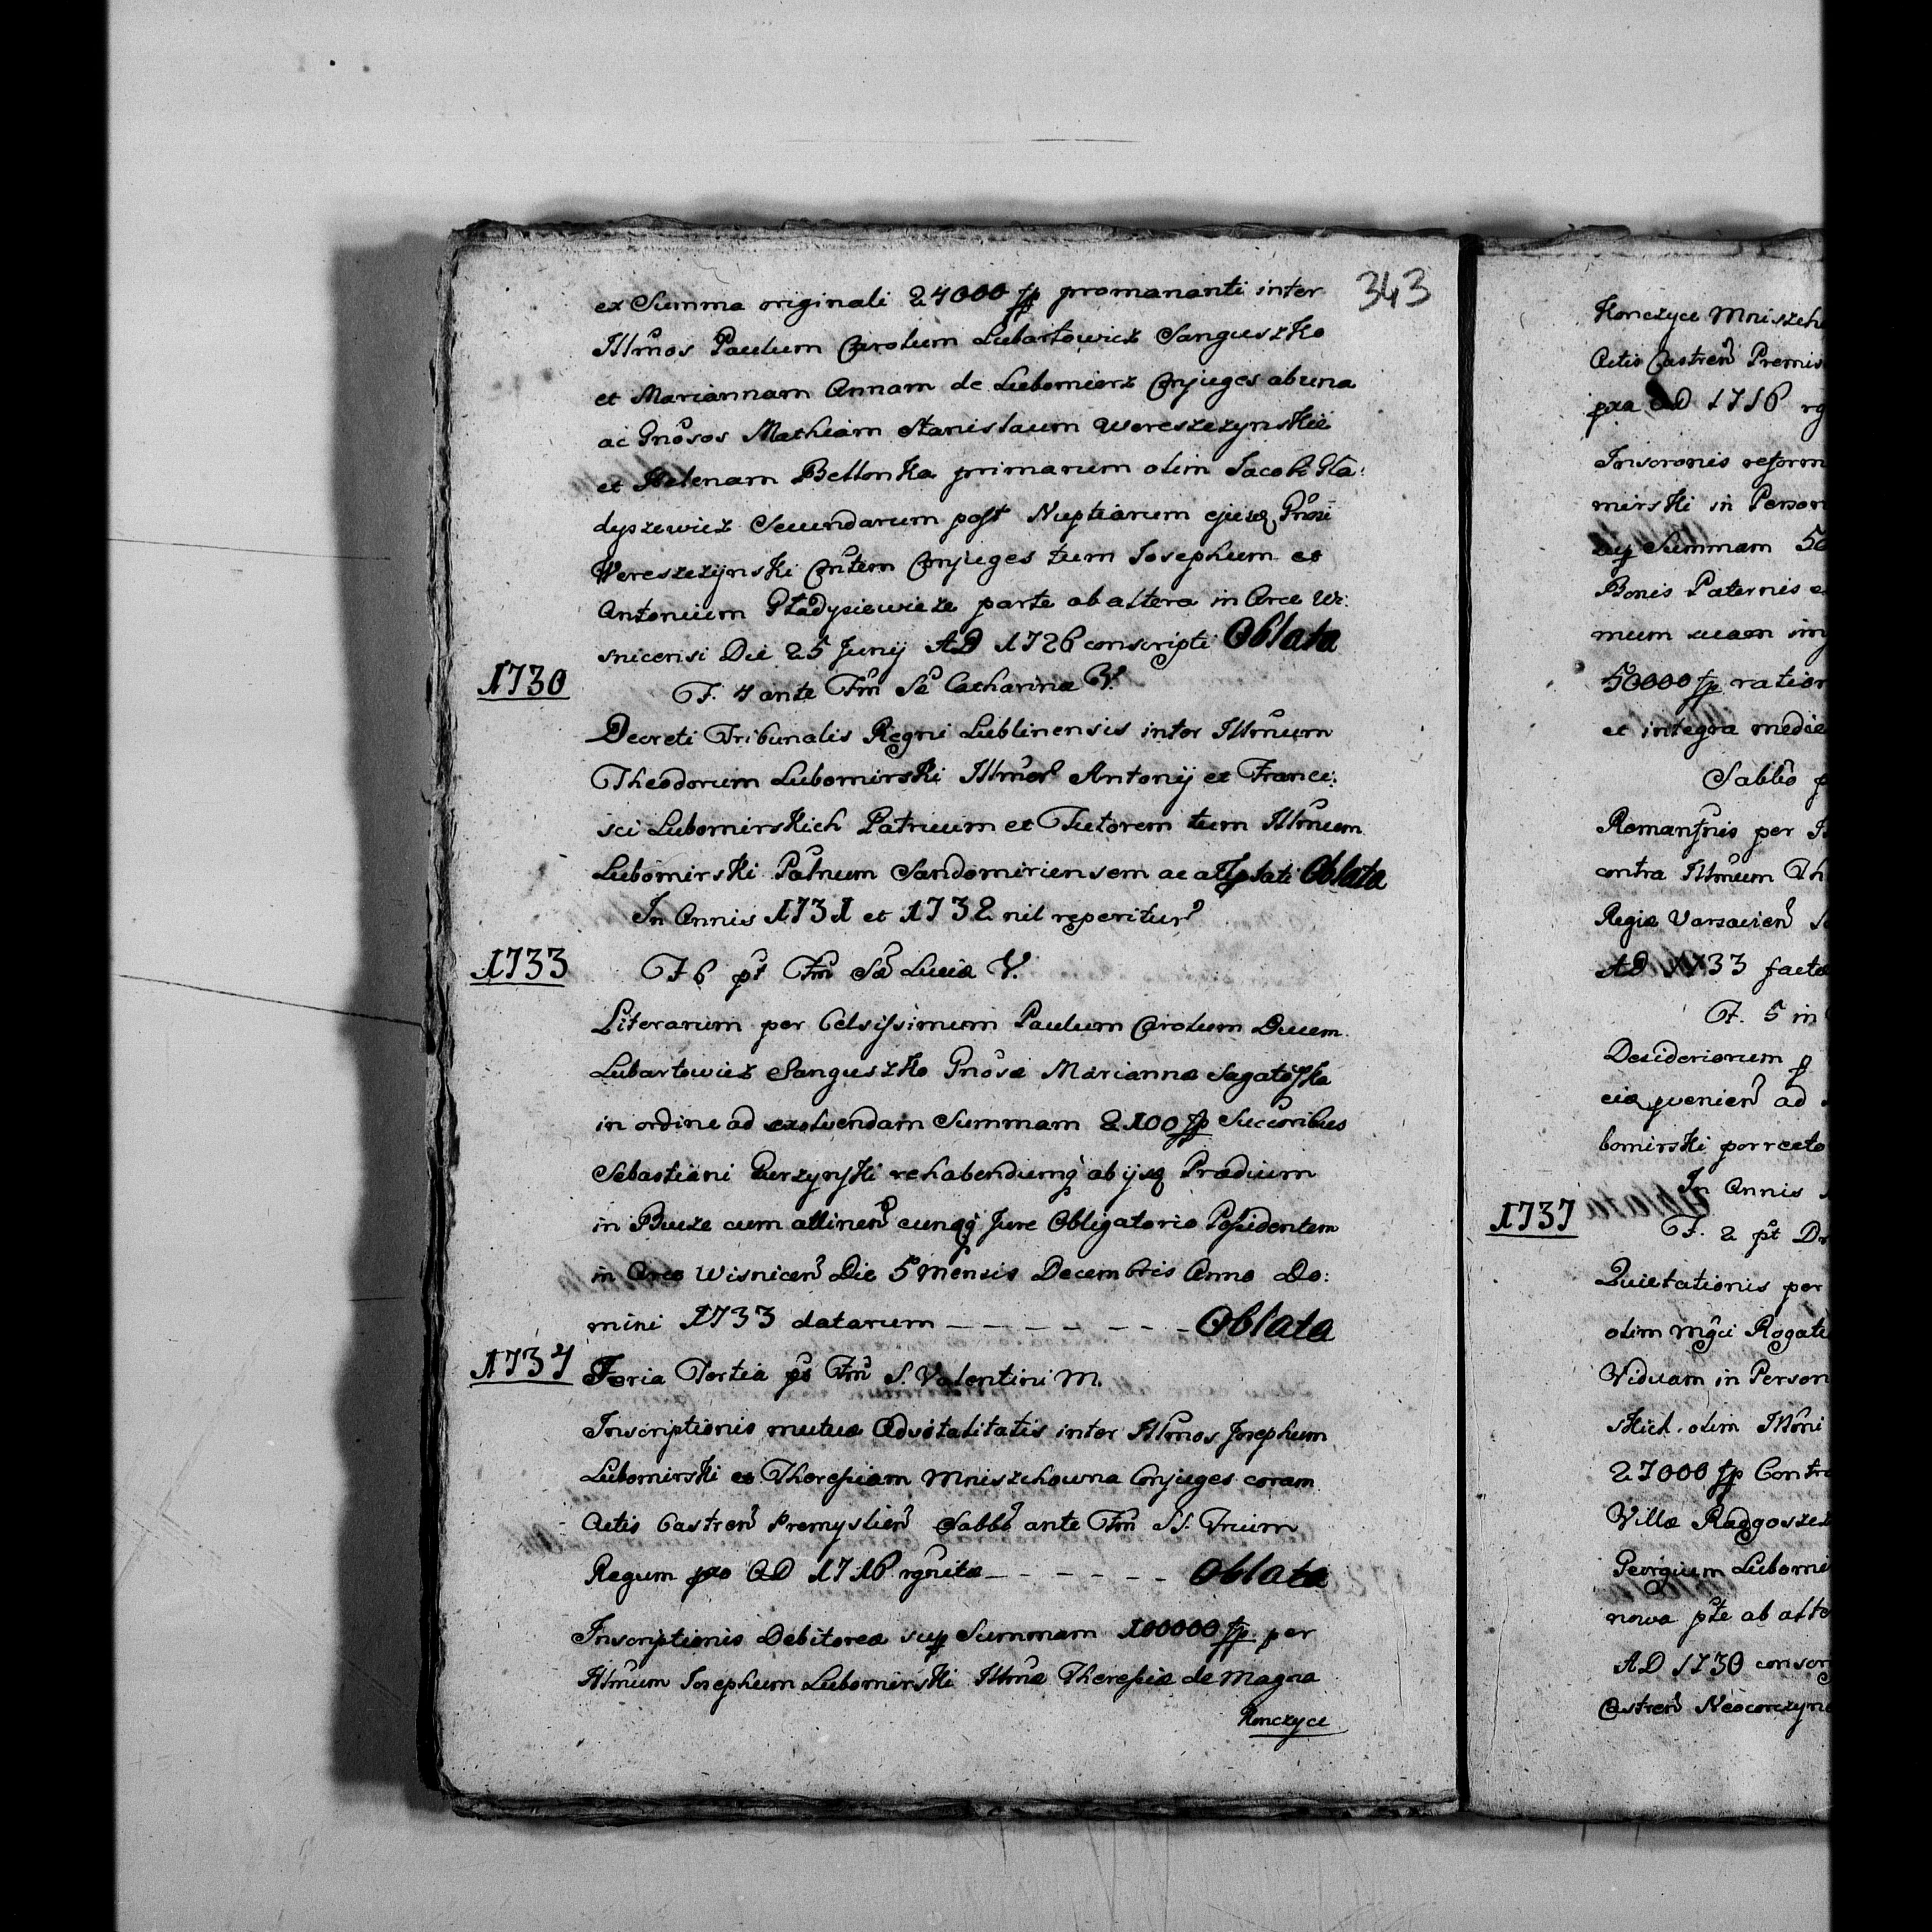 343
ex Summa originali 24000 fp promananti inter
Illmos Paulum Carolum Lubartowicz Sanguszko
et Mariannam Annam de Lubomierz Conjuges ab una
ac Gnosos Mathiam Stanislaum Wereszczynskie
et Helenam Bellonka primarum olim Jacobi Gła:
dyszewicz Secundarum post Nuptiarum ejusq
Wereszczynski Conjuges tum Josephum et
Antonium Gładysiewicze parte ab altera in Arce Wi:
snicensi Die 25 Junij AD 1726 conscripti Oblata
1730
F. 4 ante Fm Sæ Catharinæ V.
Decreti Tribunalis Regni Lublinensis inter Illmum
Theodorum Lubomirski Illmor Antonij et Franci:
sci Lubomirskich Patruum et Tutorem tum Illmum
Lubomirski Patnum Sandomiriensem ac Oblata
In Annis 1731 et 1732 nil reperitur
1733
F 6 pt Fm Sæ Luciæ V.
Literarum per Celsissimum Paulum Carolum Ducem
Lubartowicz Sanguszko Gnosæ Mariannæ
in ordine ad exolvendam Summam 2100 fp Succoribus
Sebastiani rehabendumq ab ijsq Prædium
in cum attinen cunqq Jure Obligatorio Possidentem
in Arce Wisnicen Die 5 Mensis Decembris Anno Do:
mini 1733 datarum - - - - - - - Oblata
1734
Feria Tertia ps Fm S. Valentini M.
Inscriptionis mutuæ Advitalitatis inter Illmos Josephum
Lubomirski et Theresiam Mniszchowna Conjuges coram
Actis Castren Premyslien Sabbo ante Fm SS. Trium
Regum pro AD 1716 rgnitæ - - - - - - Oblata
Inscriptionis Debitoreæ sup Summam 100000 fp per
Illmum Josephum Lubomirski Illmæ Theresiæ de Magna
Konczyce
Konczyce
Actis Castren
AD 1716
mirski in
Summam
Bonis Paternis
mum
50000 fp
et integra
Sabbo
per
contra Illmum
Regia Varsavien
AD 1733
F. 5 in
Desideriorum
ad
bomirski porrecto
In Annis
1737
F. 2 pt
Quietationis per
olim Mgci
Viduam in
olim Illmi
27000 fp
Villæ
Georgium
nowa pte ab
AD 1730
Castren